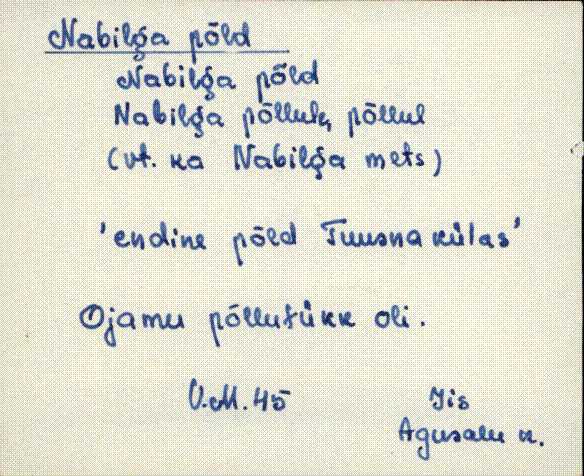 Nabilġa põld
Nabilġa põld
Nabilġa põllulε, põllul
(vt. ka Nabilġa mets)
'endine põld Tuusna külas'
Ojamu põllutükk oli.
V.M. 45 Iis
Agusalu k.